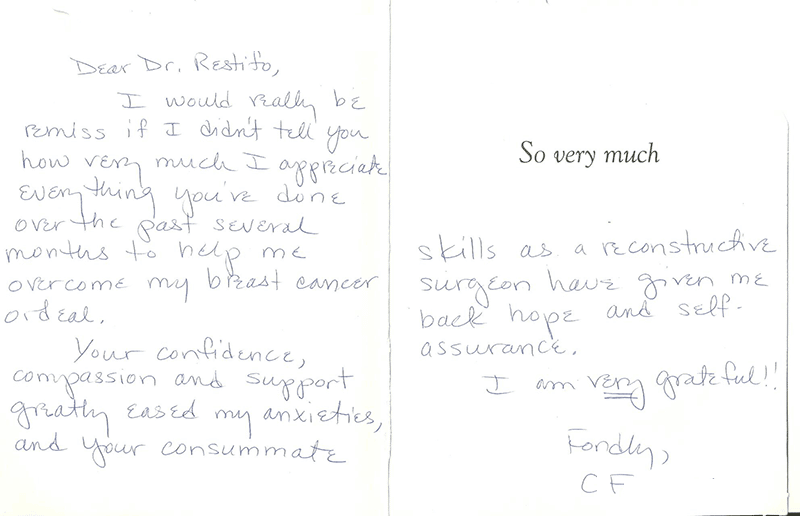 Dear Dr. Restifo,
I would really be
remiss if I didn't tell you
how very much I appreciate
everything you've done
over the past several
months to help me
overcome my breast cancer
ordeal.
Your confidence,
compassion and support
greatly eased my anxieties,
and your consummate
So very much
skills as a reconstructive
surgeon have given me
back hope and self-
assurance.
I am very grateful!!
Fondly,
CF